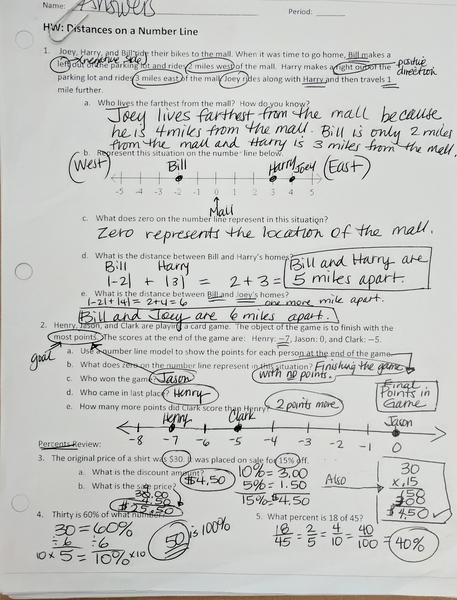 Name: Answers Period:
HW: Distances on a Number Line
1. Joey, Harry, and Bill ride their bikes to the mall. When it was time to go home, Bill makes a
left out of the parking lot and rides 2 miles west of the mall. Harry makes a right out of the positive
parking lot and rides 3 miles east of the mall. Joey rides along with Harry and then travels 1 direction
mile further.
a. Who lives the farthest from the mall? How do you know?
Joey lives farthest from the mall because
he is 4 miles from the mall. Bill is only 2 miles
from the mall and Harry is 3 miles from the mall.
b. Represent this situation on the number line below.
West Bill Harry Joey East
-5 -4 -3 -2 -1 0 1 2 3 4 5
Mall
c. What does zero on the number line represent in this situation?
Zero represents the location of the mall.
d. What is the distance between Bill and Harry's homes?
Bill Harry
|-2| + |3| = 2+3= Bill and Harry are
5 miles apart.
e. What is the distance between Bill and Joey's homes?
|-2|+|4|= 2+4=6 one more mile apart.
Bill and Joey are 6 miles apart.
2. Henry, Jason, and Clark are playing a card game. The object of the game is to finish with the
most points. The scores at the end of the game are: Henry: -7, Jason: 0, and Clark: -5.
goal
a. Use a number line model to show the points for each person at the end of the game.
b. What does zero on the number line represent in this situation? Finishing the game
with no points.
c. Who won the game? Jason
d. Who came in last place? Henry
Final
Points in
Game
e. How many more points did Clark score than Henry? 2 points more
Henry Clark Jason
-8 -7 -6 -5 -4 -3 -2 -1 0
Percents Review:
3. The original price of a shirt was $30. It was placed on sale for 15% off.
a. What is the discount amount? $4.50
10% = 3.00
5% = 1.50
15% $4.50
Also
30
x.15
150
$4.50
b. What is the sale price?
30.00
4.50
$25.50
4. Thirty is 60% of what number? 50 is 100%
30 = 60%
÷6 ÷6
10 x 5 = 10% x10
5. What percent is 18 of 45?
18/45 = 2/5 = 4/10 = 40/100 = 40%